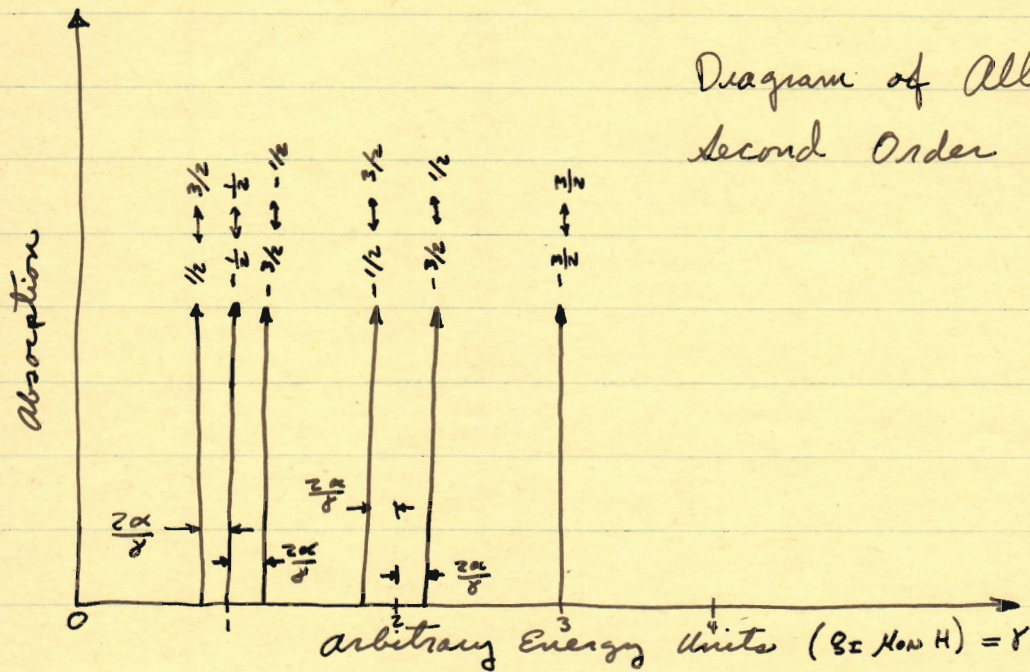 Diagram of All
Second Order
Absorption
1/2 ↔ 3/2
-1/2 ↔ 1/2
-3/2 ↔ -1/2
-1/2 ↔ 3/2
-3/2 ↔ 1/2
-3/2 ↔ 3/2
2α/γ
2α/γ
2α/γ
2α/γ
0 1 2 3 4
Arbitrary Energy Units (gI μoN H) = γ